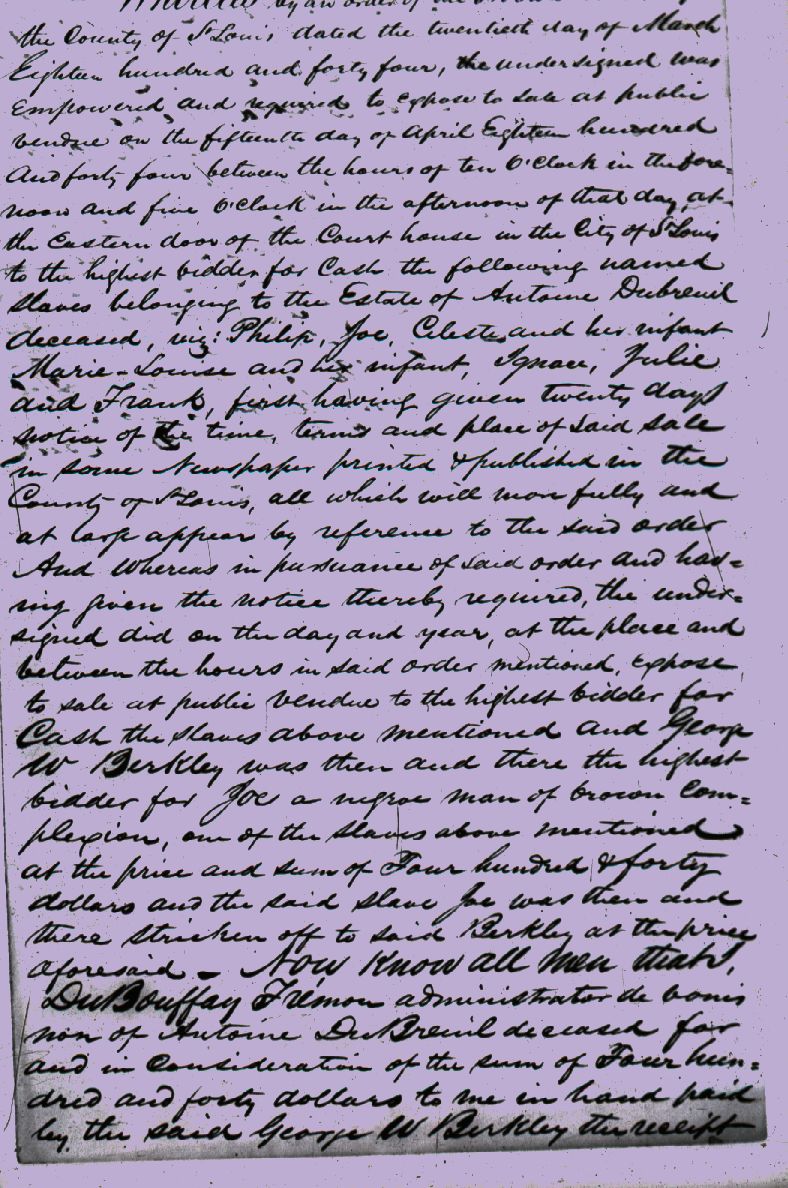 by an order of the
the County of St Louis dated the twentieth day of March
Eighteen hundred and forty four, the undersigned was
empowered and required to expose to sale at public
vendue on the fifteenth day of April Eighteen hundred
and forty four between the hours of ten O'Clock in the fore=
noon and five O'Clock in the afternoon of that day, at
the Eastern door of the Court house in the City of St Louis
to the highest bidder for Cash the following named
Slaves belonging to the Estate of Antoine Dubreuil
deceased, viz: Philip, Joe, Celeste and her infant
Marie-Louise and her infant, Ignace, Julie
and Frank, first having given twenty days
notice of the time, terms and place of said sale
in some Newspaper printed & published in the
County of St Louis, all which will more fully and
at large appear by reference to the said order
And Whereas in pursuance of said order and hav=
ing given the notice thereby required, the under=
signed did on the day and year, at the place and
between the hours in said order mentioned, expose
to sale at public vendue to the highest bidder for
Cash the slaves above mentioned and George
W Berkley was then and there the highest
bidder for Joe a negroe man of brown Com=
plexion, one of the slaves above mentioned
at the price and sum of Four hundred & forty
dollars and the said slave Joe was then and
there stricken off to said Berkley at the price
aforesaid - Now Know all men that I,
DuBouffay Frémon administrator de bonis
non of Antoine DuBreuil deceased for
and in Consideration of the sum of Four hun=
dred and forty dollars to me in hand paid
by the said George W Berkley the receipt